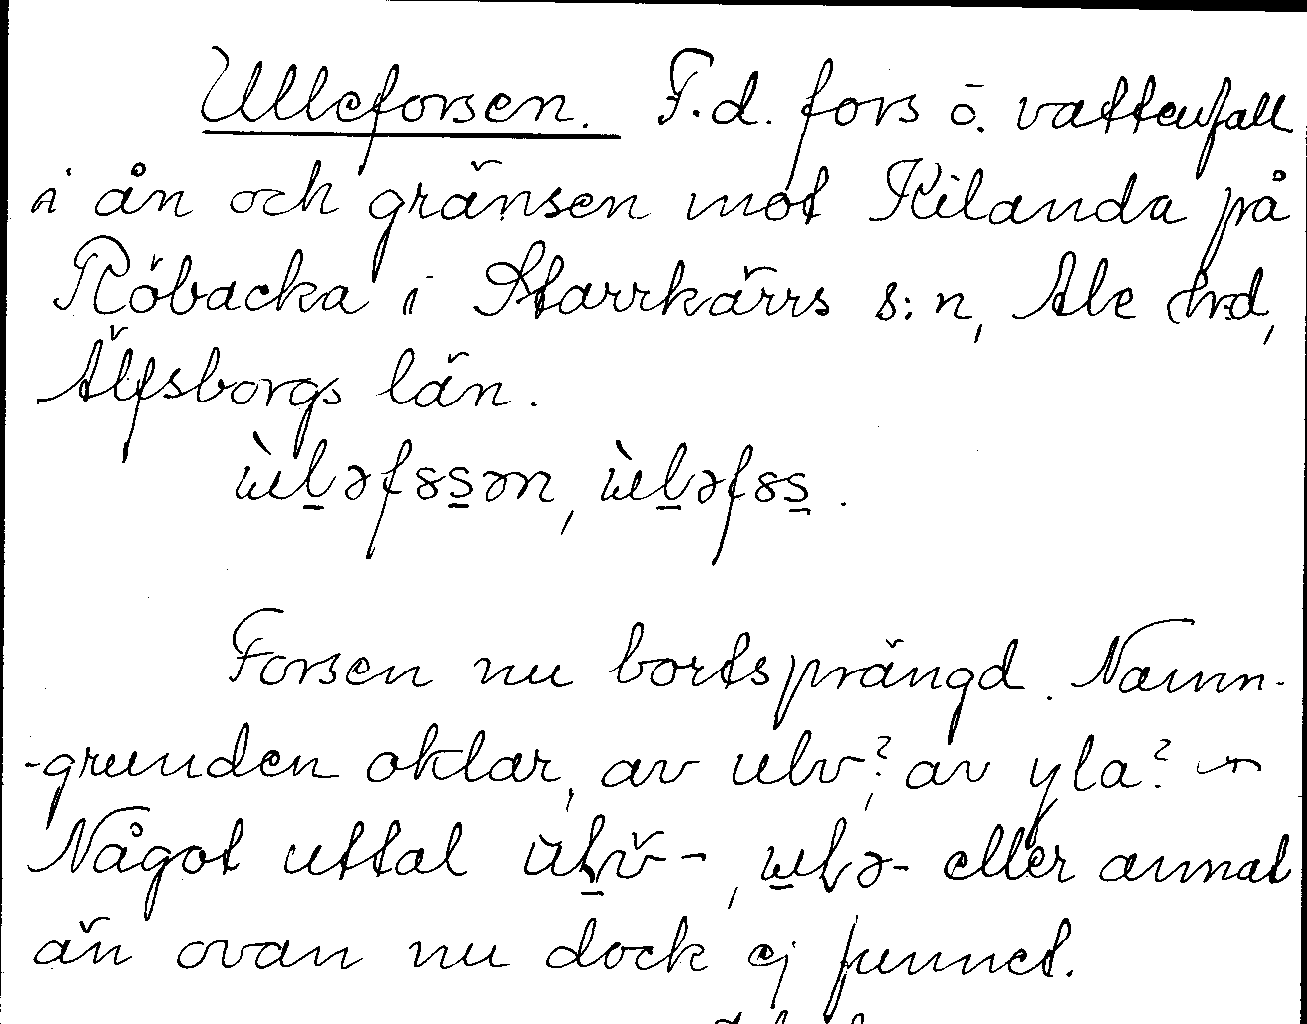 Ulleforsen. F.d. fors o. vattenfall
i ån och gränsen mot Kilanda på
Röbacka i Starrkärrs s:n, Ale hrd,
Älfsborgs län.
Forsen nu bortsprängd. Namn-
-grunden oklar, av ulv?, av yla? –
Något uttal eller annat
än ovan nu dock ej funnet.